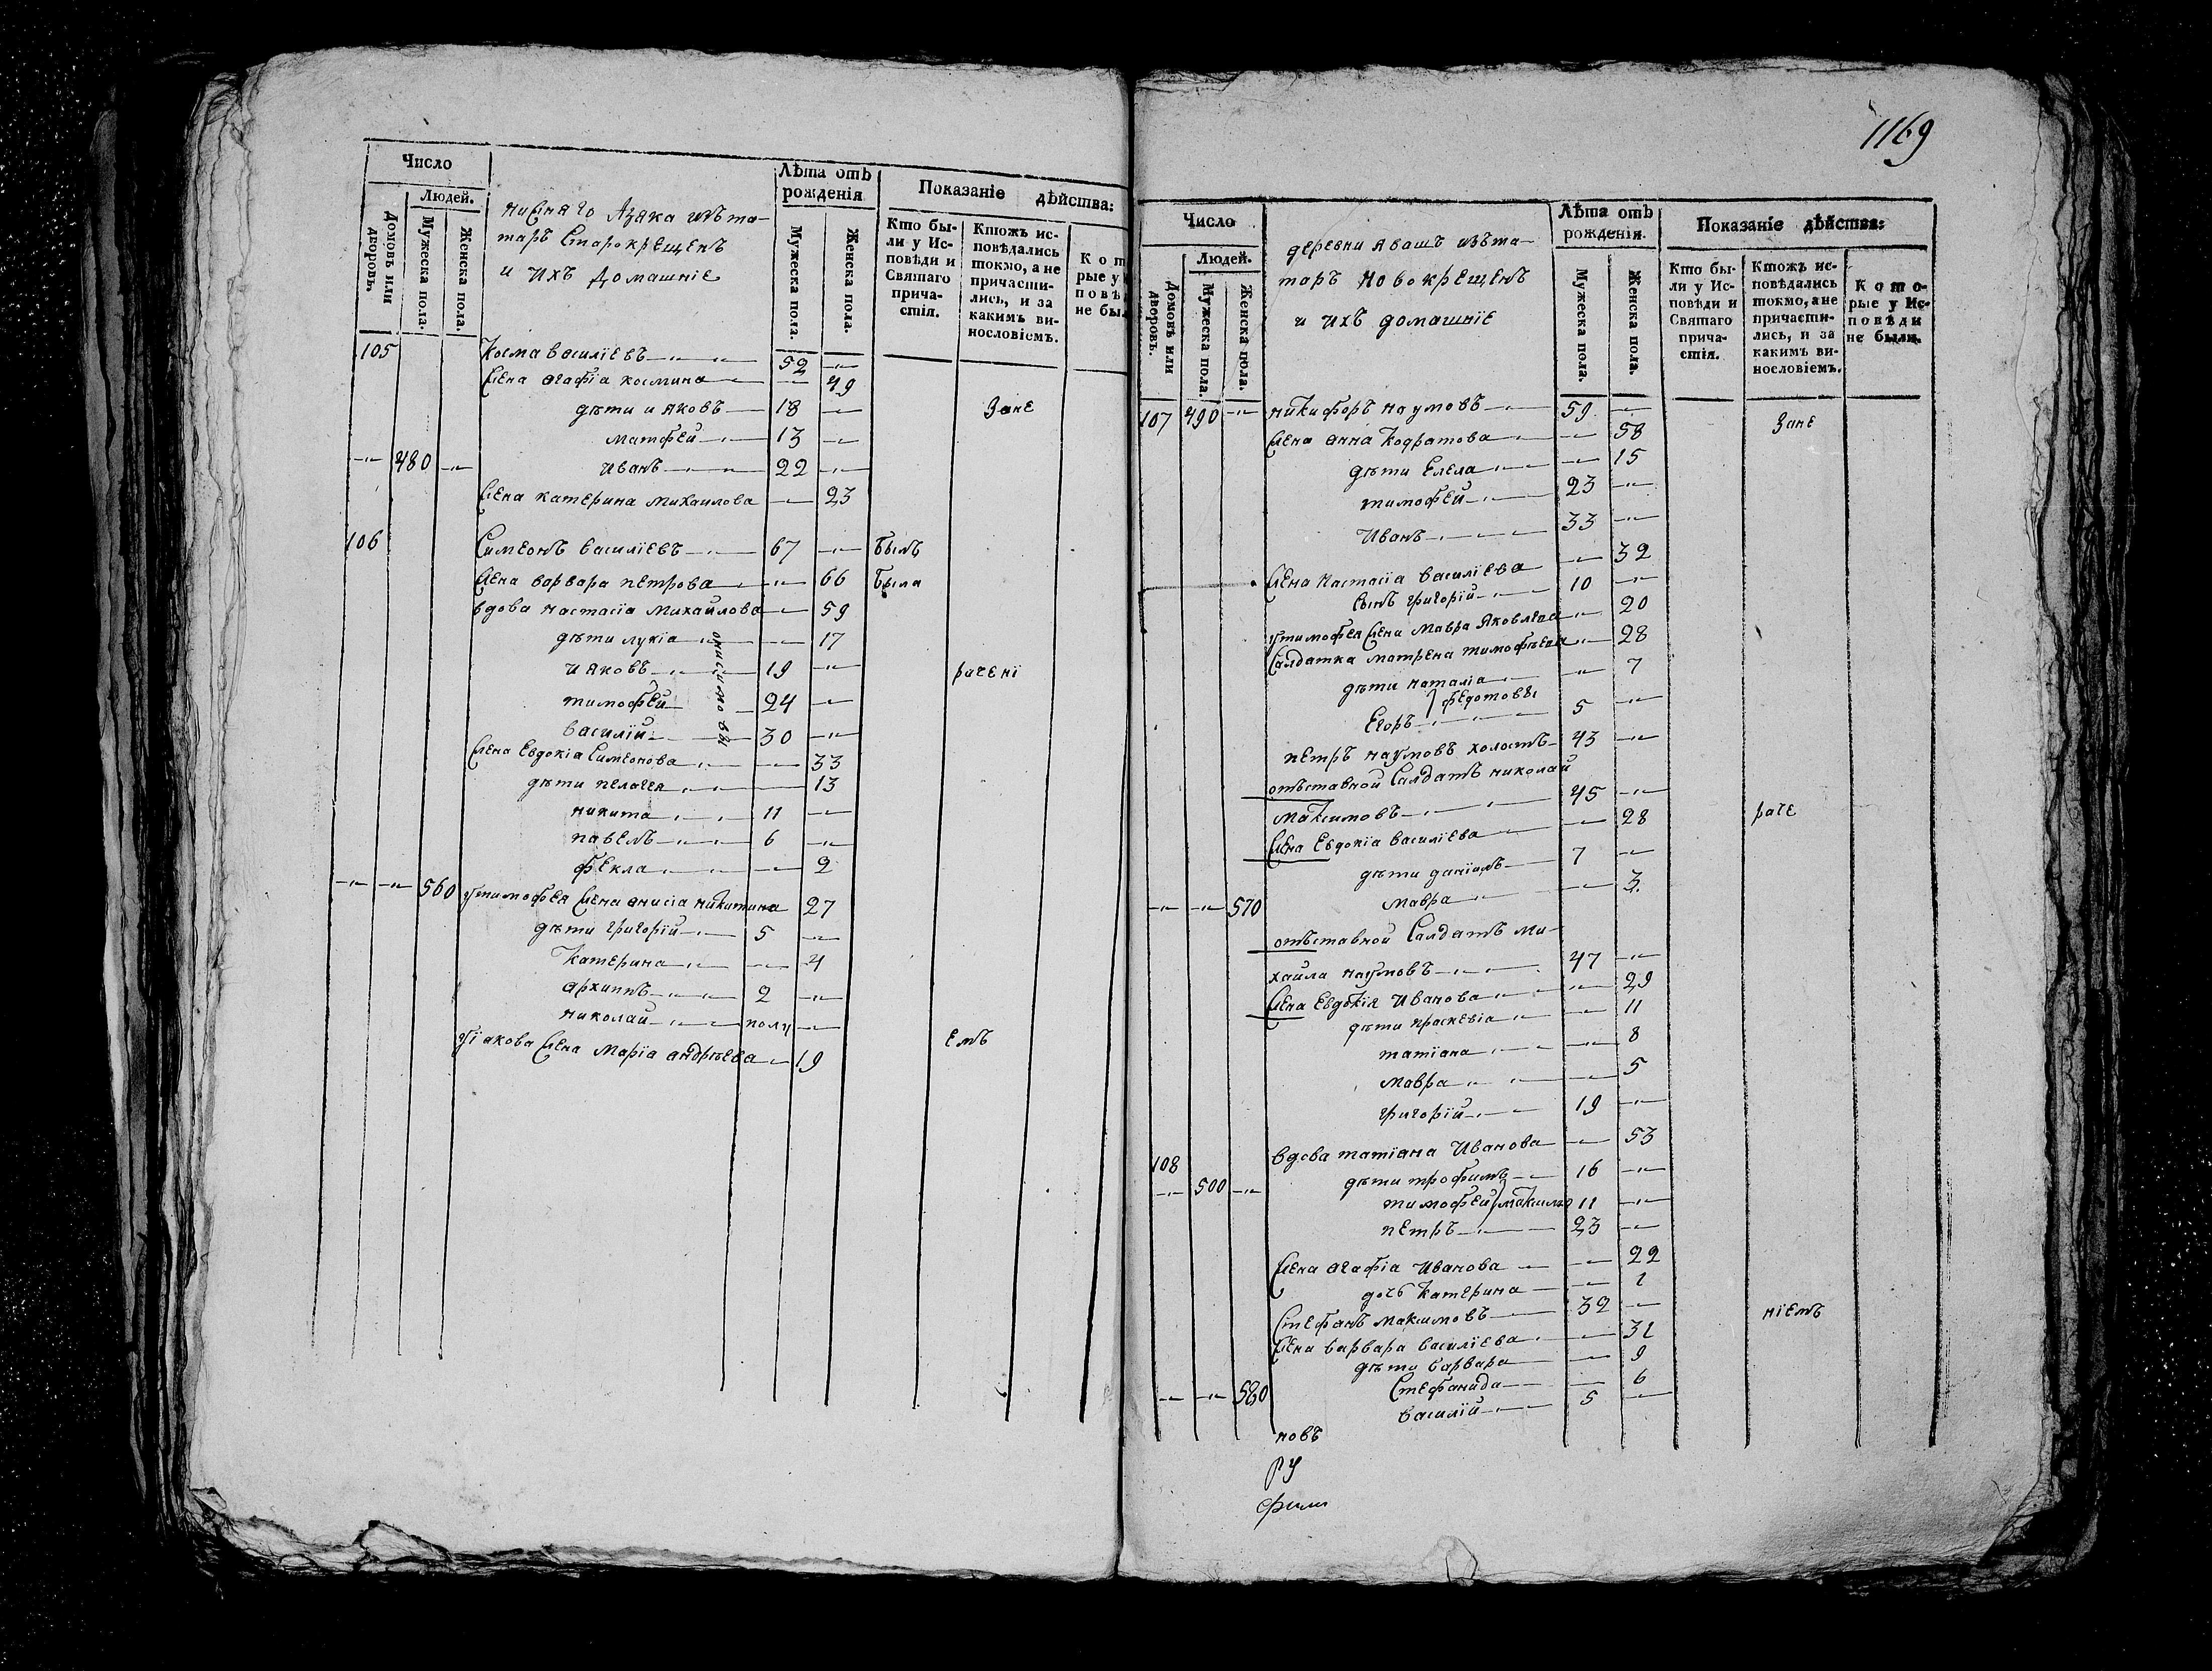 Число
Людей.
Домовъ или дворовъ.
Мужеска пола.
Женска пола.
нисняго Азяка изъ та-
таръ Старокрещенъ
и ихъ домашніе
Лѣта отъ рожденія
Мужеска пола.
Женска пола.
Показаніе дѣйства:
Кто бы-
ли у Ис-
повѣди и
Святаго
прича-
стія.
Ктожъ ис-
повѣдались
токмо, а не
причасти-
лись, и за
какимъ ви-
нословіемъ.
Кот
рые у
повѣ
не был
105 Косма василіевъ 52
Жена агафіа космина 49
дѣти иаковъ 18 Зане
матфей 13
480 иванъ 22
Жена катерина михаилова 23
106 Симеонъ василіевъ 67 былъ
Жена варвара петрова 66 была
вдова настасіа михайлова 59
дѣти лукіа 17
иаковъ 19 рачені
тимофей 24
василій 30
онисимовы
Жена Евдокіа Симеонова 33
дѣти пелагея 13
никита 11
павелъ 6
фекла 2
560 утимофея Жена анисіа никитина 27
дѣти григорій 5
Катерина 4
архиппъ 2
николай полу
уіакова Жена Маріа андрѣева 19 емъ
1169
Число
Людей.
Домовъ или дворовъ.
Мужеска пола.
Женска пола.
деревни Авашъ изъ та-
таръ новокрещенъ
и ихъ домашніе
Лѣта отъ рожденія.
Мужеска пола.
Женска пола.
Показаніе дѣйства:
Кто бы-
ли у Ис-
повѣди и
Святаго
прича-
стія.
Ктожъ ис-
повѣдались
токмо, а не
причасти-
лись, и за
какимъ ви-
нословіемъ.
Кото-
рые у Ис-
повѣди
не были.
107 490 никифоръ наумовъ 59 Зане
Жена анна Кодратова 58
дѣти Елена 15
тимофей 23
Иванъ 33
Жена настасіа василіева 32
сынъ григорій 10
утимофея Жена Мавра Яковлева 20
Салдатка матрена тимофѣева 28
дѣти наталіа 7
федотовы
Егоръ 5
петръ наумовъ холостъ 43
отъставной Салдатъ николай
максимовъ 45 раче
Жена Евдокіа василіева 28
дѣти даніилъ 7
570 мавра 3
отъставной Салдатъ Ми-
хайла наумовъ 47
Жена Евдокіа Иванова 29
дѣти праскевіа 11
татіана 8
мавра 5
григорій 19
108 вдова татіана Иванова 53
500 дѣти трофимъ 16
тимофей максимо 11
петръ 23
Жена агафіа Иванова 22
дочь Катерина 1
Стефанъ максимовъ 32 ніемъ
Жена варвара василіева 31
дѣти варвара 9
580 Стефанида 6
василій 5
новъ
ру
фили